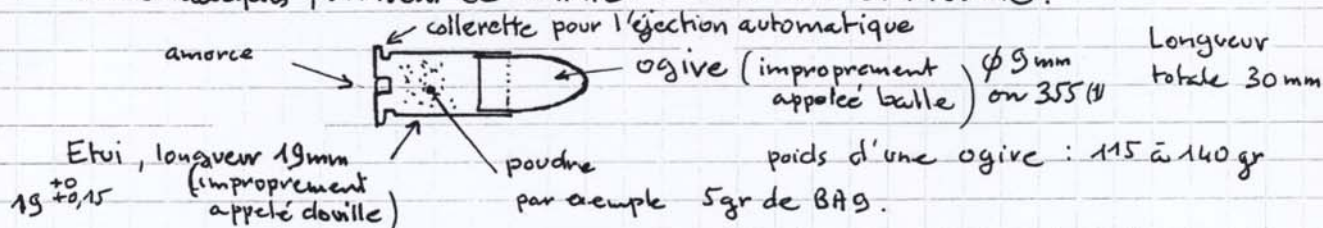 collerette pour l'éjection automatique
amorce
ogive (improprement appelée balle) ϕ 9 mm ou 355 (1)
Longueur totale 30 mm
Etui, longueur 19mm
(improprement appelé douille)
19 +0 +0,15
poudre
par exemple 5gr de BA9.
poids d'une ogive : 115 à 140 gr